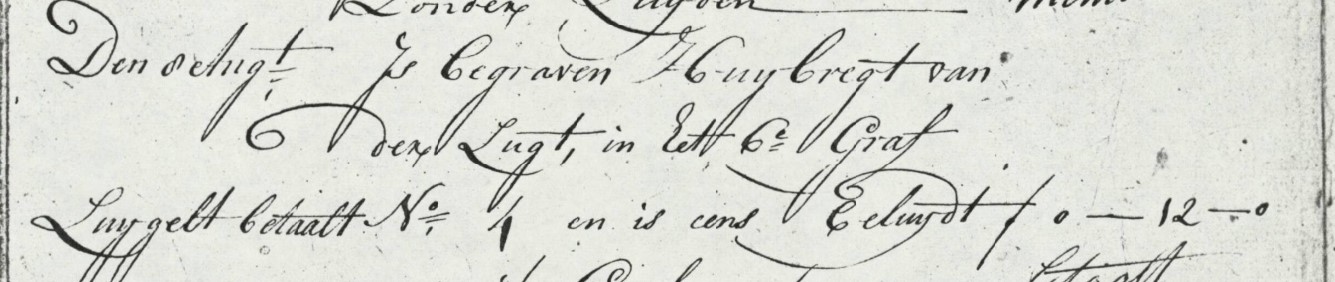 Sonder Luyden
Den 8 Augt Is begraven Huybregt van
der Lugt, in Lett 6e Graf
Luygelt betaalt No 4 en is eens Beluydt f 0 — 12 — 0
betaalt